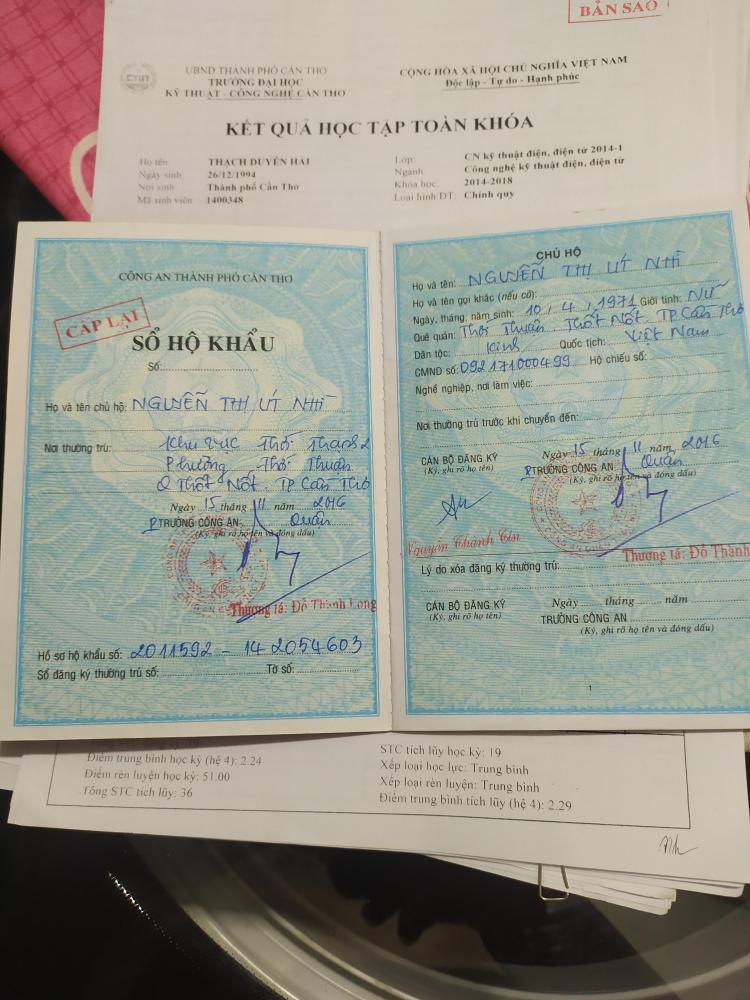 BẢN SAO
UBND THÀNH PHỐ CẦN THƠ
TRƯỜNG ĐẠI HỌC
KỸ THUẬT - CÔNG NGHỆ CẦN THƠ
CỘNG HÒA XÃ HỘI CHỦ NGHĨA VIỆT NAM
Độc lập - Tự do - Hạnh phúc
KẾT QUẢ HỌC TẬP TOÀN KHÓA
Họ tên THẠCH DUYÊN HẢI
Ngày sinh 26/12/1994
Nơi sinh Thành phố Cần Thơ
Mã sinh viên 1400348
Lớp: CN kỹ thuật điện, điện tử 2014-1
Ngành Công nghệ kỹ thuật điện, điện tử
Khóa học: 2014-2018
Loại hình ĐT: Chính quy
CÔNG AN THÀNH PHỐ CẦN THƠ
CẤP LẠI
SỔ HỘ KHẨU
Số:
Họ và tên chủ hộ: NGUYỄN THỊ ÚT NHÌ
Nơi thường trú: Khu vực Thới Thạnh 2
Phường Thới Thuận
Q Thốt Nốt. TP Cần Thơ
Ngày 15 tháng 11 năm 2016
P TRƯỞNG CÔNG AN Quận
(Ký, ghi rõ họ tên và đóng dấu)
Thượng tá: Đỗ Thành Long
Hồ sơ hộ khẩu số: 2011592 - 142054603
Sổ đăng ký thường trú số: Tờ số:
CHỦ HỘ
Họ và tên: NGUYỄN THỊ ÚT NHÌ
Họ và tên gọi khác (nếu có):
Ngày, tháng, năm sinh: 10, 4, 1971 Giới tính: NỮ
Quê quán: Thới Thuận. Thốt Nốt. TP Cần Thơ
Dân tộc: Kinh Quốc tịch: Việt Nam
CMND số: 092171000499 Hộ chiếu số:
Nghề nghiệp, nơi làm việc:
Nơi thường trú trước khi chuyển đến:
Ngày 15 tháng 11 năm 2016
CÁN BỘ ĐĂNG KÝ
(Ký, ghi rõ họ tên)
P TRƯỞNG CÔNG AN Quận
(Ký, ghi rõ họ tên và đóng dấu)
Nguyễn Chanh Tín
Thượng tá: Đỗ Thành
Lý do xóa đăng ký thường trú:
Ngày tháng năm
CÁN BỘ ĐĂNG KÝ
(Ký, ghi rõ họ tên)
TRƯỞNG CÔNG AN
(Ký, ghi rõ họ tên và đóng dấu)
1
Điểm trung bình học kỳ (hệ 4): 2.24
Điểm rèn luyện học kỳ: 51.00
Tổng STC tích lũy: 36
STC tích lũy học kỳ: 19
Xếp loại học lực: Trung bình
Xếp loại rèn luyện: Trung bình
Điểm trung bình tích lũy (hệ 4): 2.29